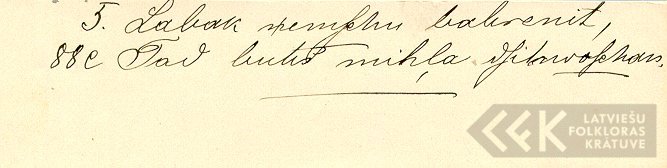 5. Labak ņemschu bahrenit,
88c Tad buhs mihļa dsihwoschan.
LATVIEŠU
FOLKLORAS
KRĀTUVE